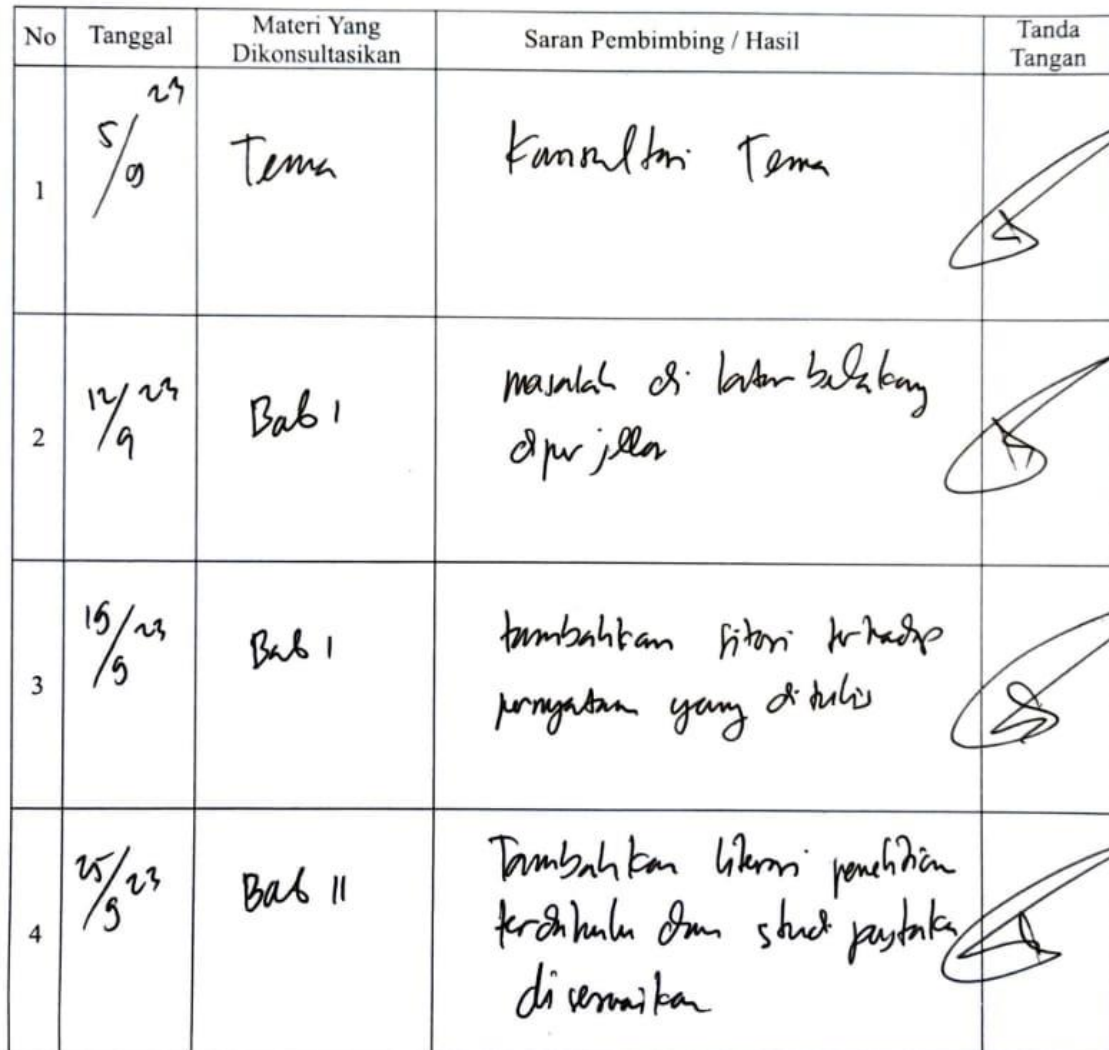 No Tanggal Materi Yang Dikonsultasikan Saran Pembimbing / Hasil Tanda Tangan
1 5/9 23 Tema Konsultasi Tema
2 12/9 23 Bab I masalah di latar belakang
diperjelas
3 15/9 23 Bab I tambahkan sitasi terhadap
pernyataan yang ditulis
4 25/9 23 Bab II Tambahkan literasi penelitian
terdahulu dan studi pustaka
disesuaikan